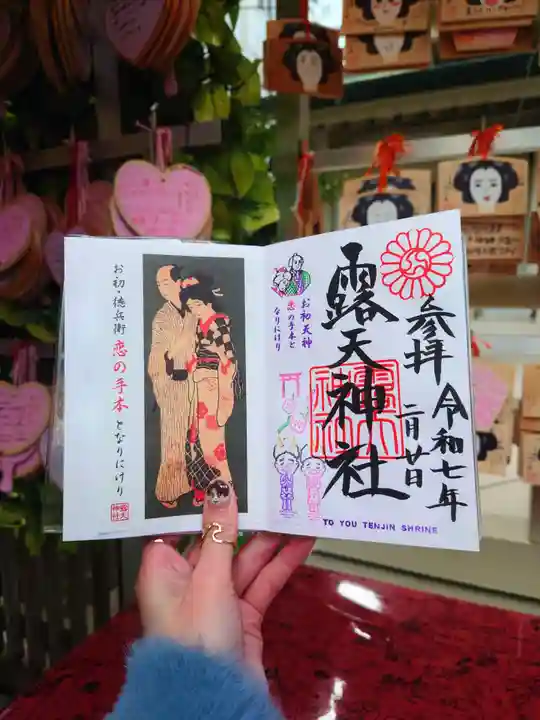 お初・徳兵衛 恋の手本 となりにけり
露天神社
お初天神
恋の手本と
なりにけり
露天神社
参拝
令和七年
二月廿日
TO YOU TENJIN SHRINE